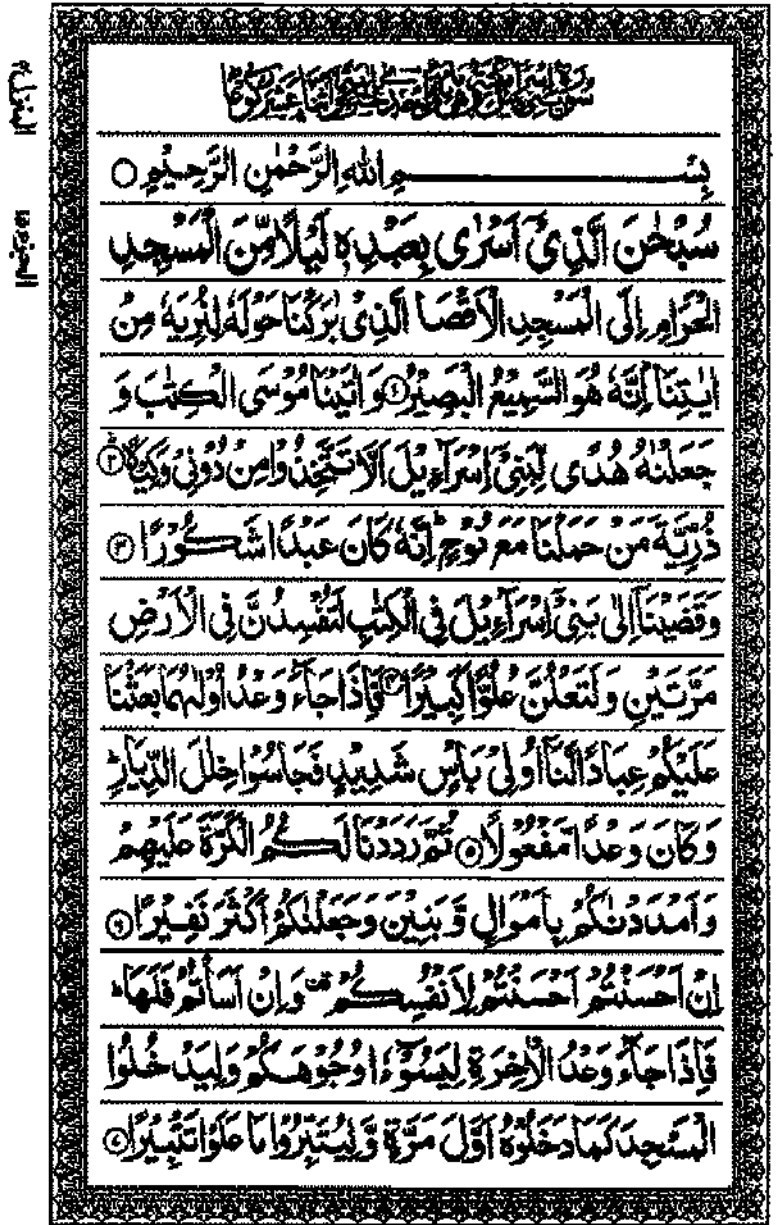 سُوْرَةُ بَنِيْ اِسْرَآءِيْلَ مَكِّيَّةٌ وَّهِيَ مِائَةٌ وَّ عَشَرَ رُكُوْعًا
بِسْمِ اللّٰهِ الرَّحْمٰنِ الرَّحِيْمِ
سُبْحٰنَ الَّذِيْٓ اَسْرٰى بِعَبْدِهٖ لَيْلًا مِّنَ الْمَسْجِدِ
الْحَرَامِ اِلَى الْمَسْجِدِ الْاَقْصَا الَّذِيْ بٰرَكْنَا حَوْلَهٗ لِنُرِيَهٗ مِنْ
اٰيٰتِنَا ؕ اِنَّهٗ هُوَ السَّمِيْعُ الْبَصِيْرُ ۝۱ وَ اٰتَيْنَا مُوْسَى الْكِتٰبَ وَ
جَعَلْنٰهُ هُدًى لِّبَنِيْٓ اِسْرَآءِيْلَ اَلَّا تَتَّخِذُوْا مِنْ دُوْنِيْ وَكِيْلًا ؕ۝۲
ذُرِّيَّةَ مَنْ حَمَلْنَا مَعَ نُوْحٍ ؕ اِنَّهٗ كَانَ عَبْدًا شَكُوْرًا ۝۳
وَ قَضَيْنَآ اِلٰى بَنِيْٓ اِسْرَآءِيْلَ فِي الْكِتٰبِ لَتُفْسِدُنَّ فِي الْاَرْضِ
مَرَّتَيْنِ وَ لَتَعْلُنَّ عُلُوًّا كَبِيْرًا ۝۴ فَاِذَا جَآءَ وَعْدُ اُوْلٰىهُمَا بَعَثْنَا
عَلَيْكُمْ عِبَادًا لَّنَآ اُولِيْ بَاْسٍ شَدِيْدٍ فَجَاسُوْا خِلٰلَ الدِّيَارِ ؕ
وَ كَانَ وَعْدًا مَّفْعُوْلًا ۝۵ ثُمَّ رَدَدْنَا لَكُمُ الْكَرَّةَ عَلَيْهِمْ
وَ اَمْدَدْنٰكُمْ بِاَمْوَالٍ وَّ بَنِيْنَ وَ جَعَلْنٰكُمْ اَكْثَرَ نَفِيْرًا ۝۶
اِنْ اَحْسَنْتُمْ اَحْسَنْتُمْ لِاَنْفُسِكُمْ ۫ وَ اِنْ اَسَاْتُمْ فَلَهَا ؕ
فَاِذَا جَآءَ وَعْدُ الْاٰخِرَةِ لِيَسُوْٓءٗا وُجُوْهَكُمْ وَ لِيَدْخُلُوا
الْمَسْجِدَ كَمَا دَخَلُوْهُ اَوَّلَ مَرَّةٍ وَّ لِيُتَبِّرُوْا مَا عَلَوْا تَتْبِيْرًا ۝۷